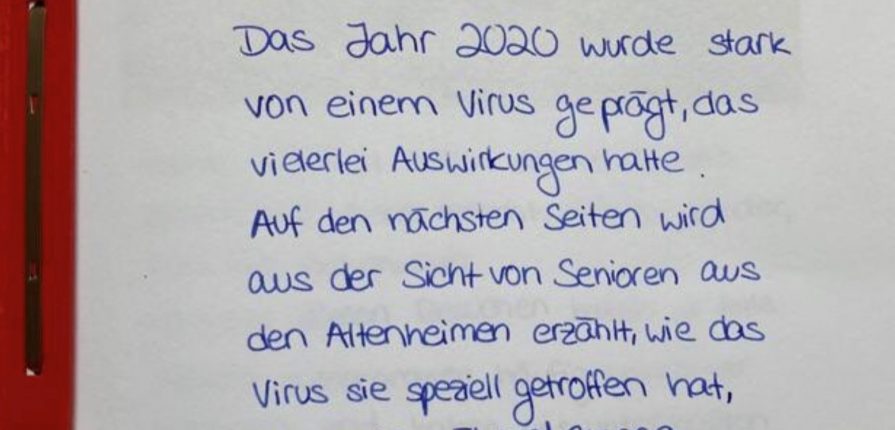 Das Jahr 2020 wurde stark
von einem Virus geprägt, das
vielerlei Auswirkungen hatte.
Auf den nächsten Seiten wird
aus der Sicht von Senioren aus
den Altenheimen erzählt, wie das
Virus sie speziell getroffen hat,